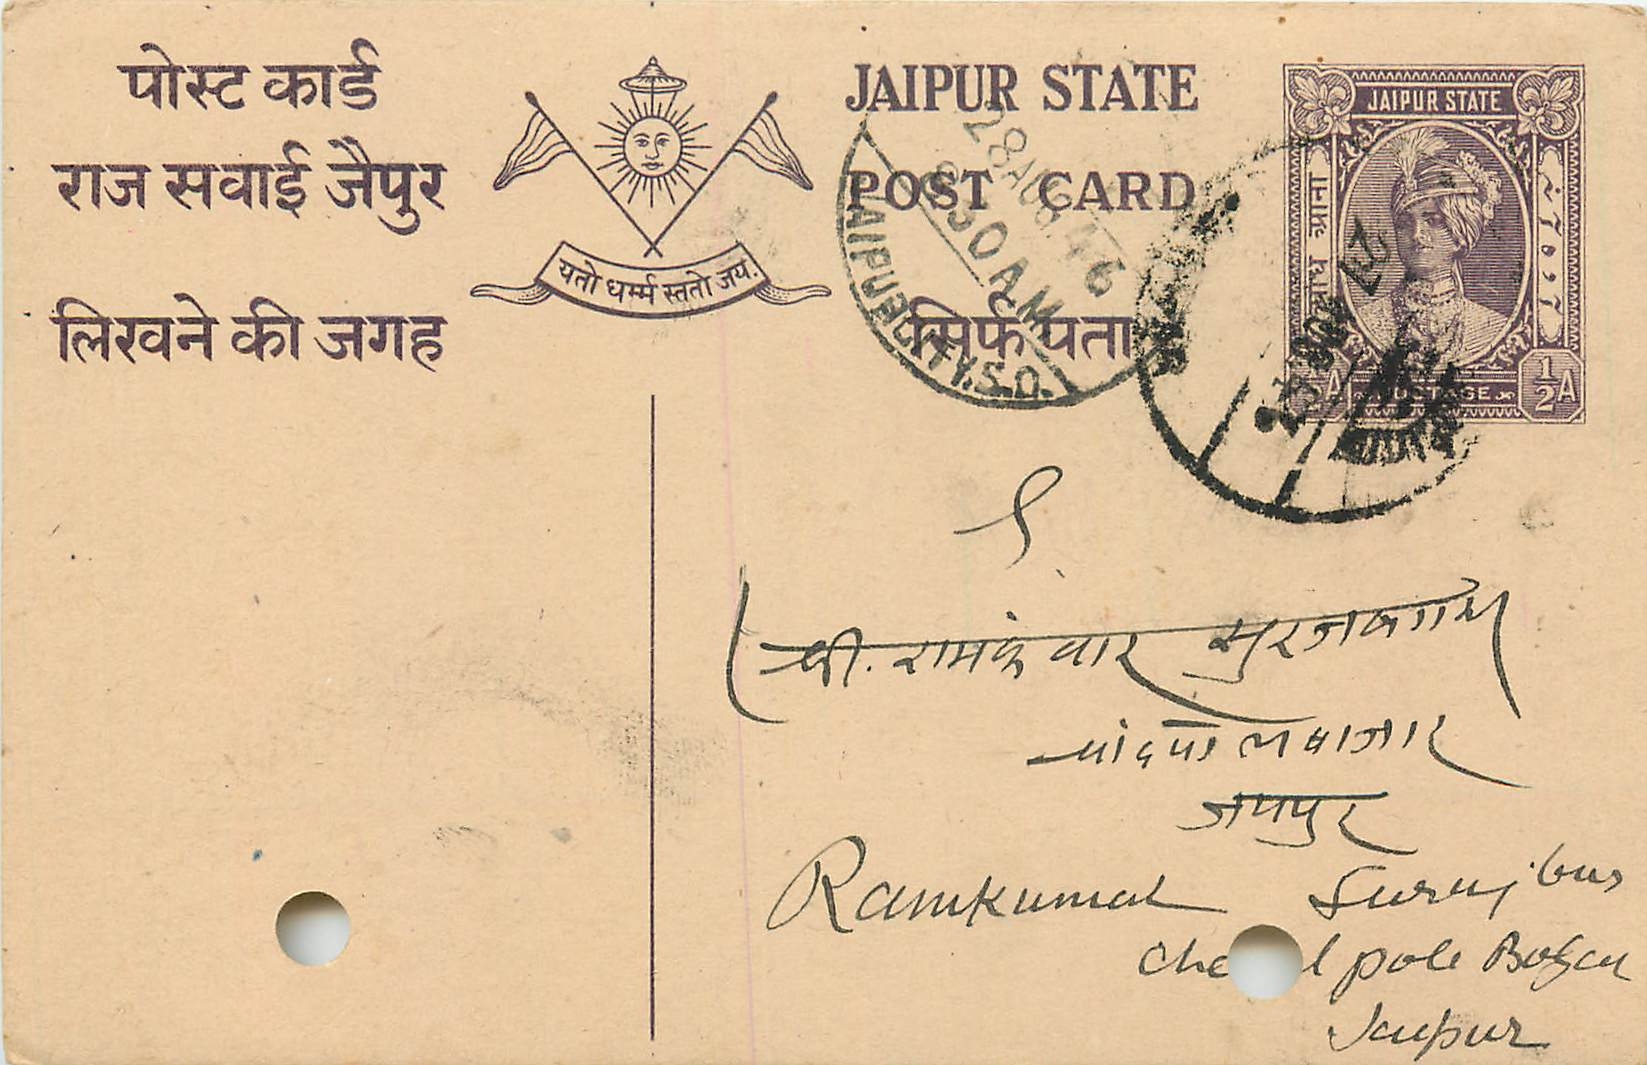 पोस्ट कार्ड
राज सवाई जैपुर
लिखने की जगह
यतो धर्म्म स्ततो जय.
JAIPUR STATE
POST CARD
सिर्फ पता
JAIPUR STATE
आध आना
1/2 A
POSTAGE
28 AUG 46
30 A.M
JAIPUR CITY. S.O.
श्री. रामकुंवार सुरजबगस
चांदपोल बाजार
जयपुर
Ramkumar Surujbus
pole Bazar
Jaipur